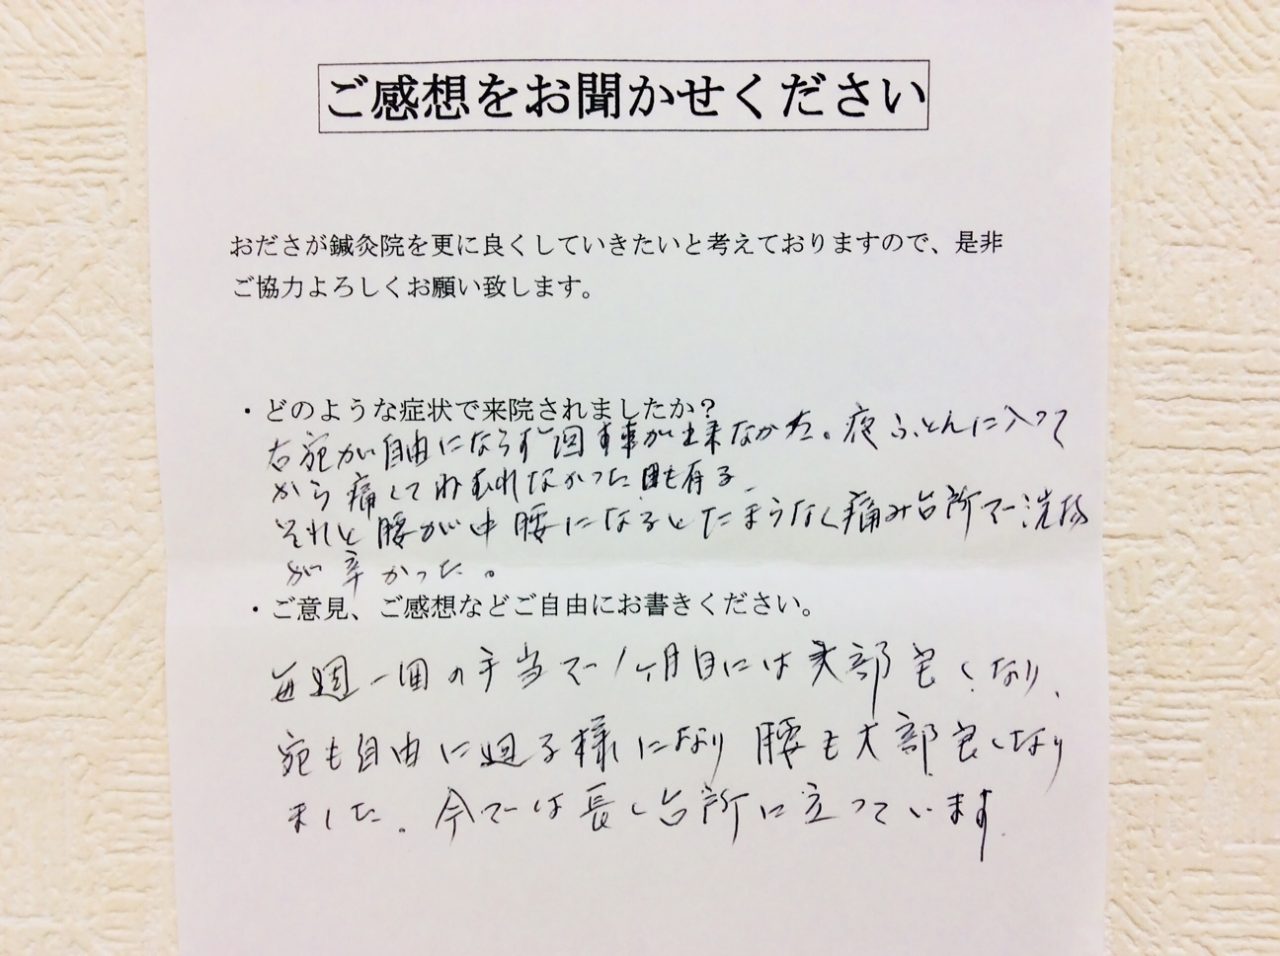 ご感想をお聞かせください
おださが鍼灸院を更に良くしていきたいと考えておりますので、是非
ご協力よろしくお願い致します。
・どのような症状で来院されましたか？
右宛が自由にならず回す事が出来なかた。夜ふとんに入って
から痛くてねむれなかった日も有る、
それと腰が中腰になるとたまらなく痛み台所で洗物
が辛かった。
・ご意見、ご感想などご自由にお書きください。
毎週一回の手当で1ヶ月目には大部良くなり、
宛も自由に廻る様になり腰も大部良くなり
ました。今では長く台所に立っています。